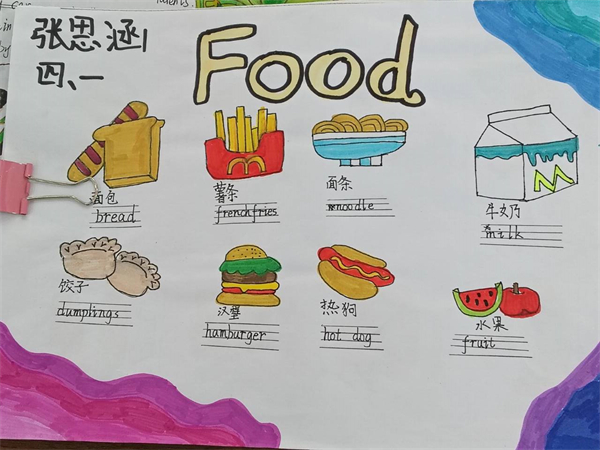 张思涵
四、一
Food
面包
bread
薯条
frenchfries
面条
noodle
牛奶
milk
饺子
dumplings
汉堡
hamburger
热狗
hot dog
水果
fruit